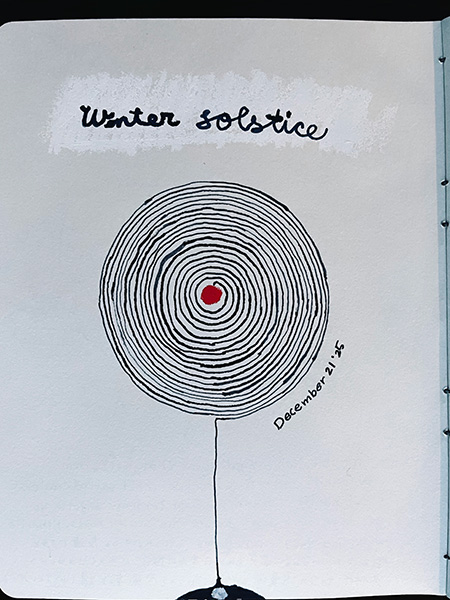 Winter solstice
December 21 '25